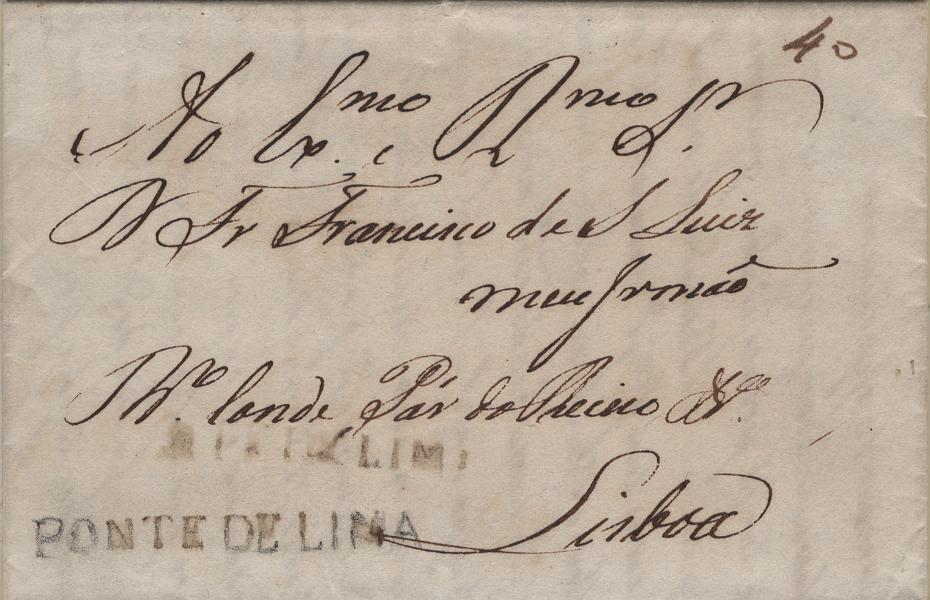 40
Ao Exmo e Rmo Sr
D Fr Francisco de S Luiz
meu Irmão
Conde Par do Reino &ª
LIM
PONTE DE LIMA
Lisboa